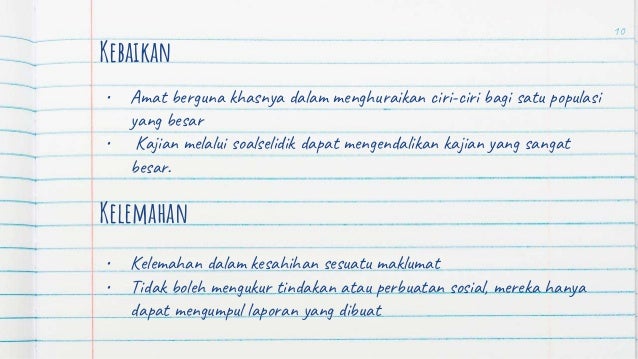 10
KEBAIKAN
• Amat berguna khasnya dalam menghuraikan ciri-ciri bagi satu populasi
yang besar
• Kajian melalui soalselidik dapat mengendalikan kajian yang sangat
besar.
KELEMAHAN
• Kelemahan dalam kesahihan sesuatu maklumat
• Tidak boleh mengukur tindakan atau perbuatan sosial, mereka hanya
dapat mengumpul laporan yang dibuat